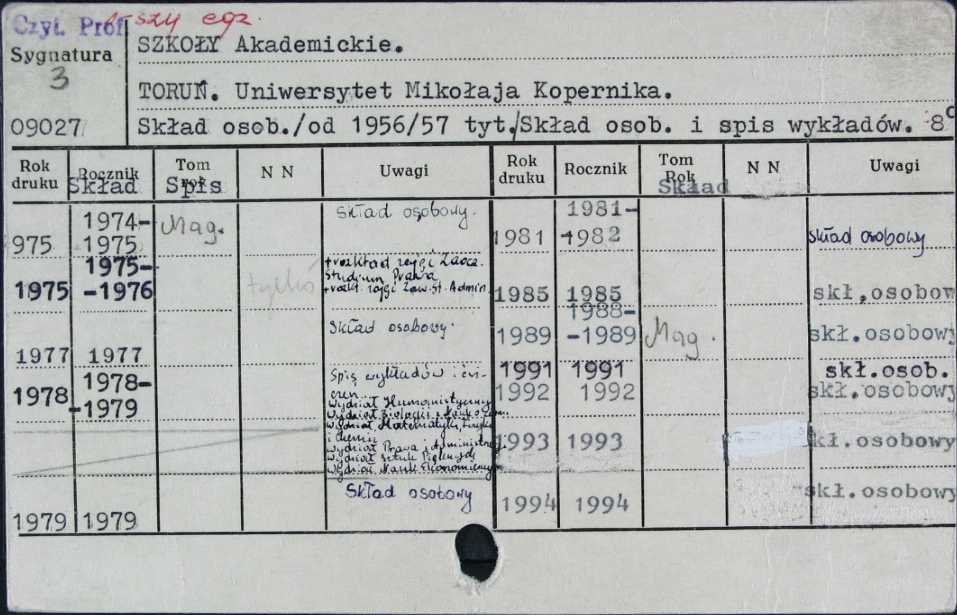 Czyt. Prof. 1-szy egz.
Sygnatura
3
09027
SZKOŁY Akademickie.
TORUŃ. Uniwersytet Mikołaja Kopernika.
Skład osob./od 1956/57 tyt./Skład osob. i spis wykładów. 8°
Rok druku Rocznik Tom Rok N N Uwagi Rok druku Rocznik Tom Rok N N Uwagi
Skład Spis Skład
975 1974-1975 Mag. Skład osobowy.
1975 1975-1976 tylko
+rozkład zajęć Zaocz.
Studium Prawa
+rozkł. zajęć Zaw. St. Admin.
1977 1977 Skład osobowy.
1978 1978-1979 Spis wykładów i ćwi-
czeń.
Wydział Humanistyczny
Wydział Biologii i Nauk o Ziemi
Wydział Matematyki, Fizyki
i Chemii
Wydział Prawa i Administracji
Wydział Sztuk Pięknych
Wydział Nauk Ekonomicznych
1979 1979 Skład osobowy
1981 1981-1982 skład osobowy
1985 1985 skł,osobow
1989 1988-1989 Mag. skł.osobowy
1991 1991 skł.osob.
1992 1992 skł.osobowy
1993 1993 skł.osobowy
1994 1994 skł.osobowy